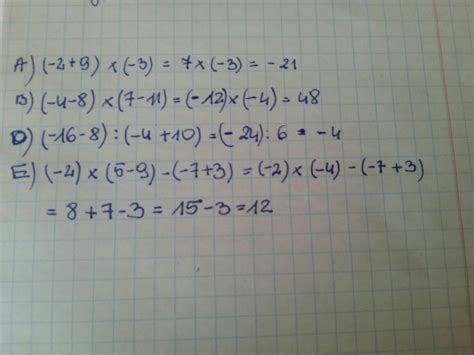 A) (-2+9) × (-3) = 7 × (-3) = -21
B) (-4-8) × (7-11) = (-12) × (-4) = 48
D) (-16-8) : (-4+10) = (-24) : 6 = -4
E) (-2) × (5-9) - (-7+3) = (-2) × (-4) - (-7+3)
= 8 + 7 - 3 = 15 - 3 = 12